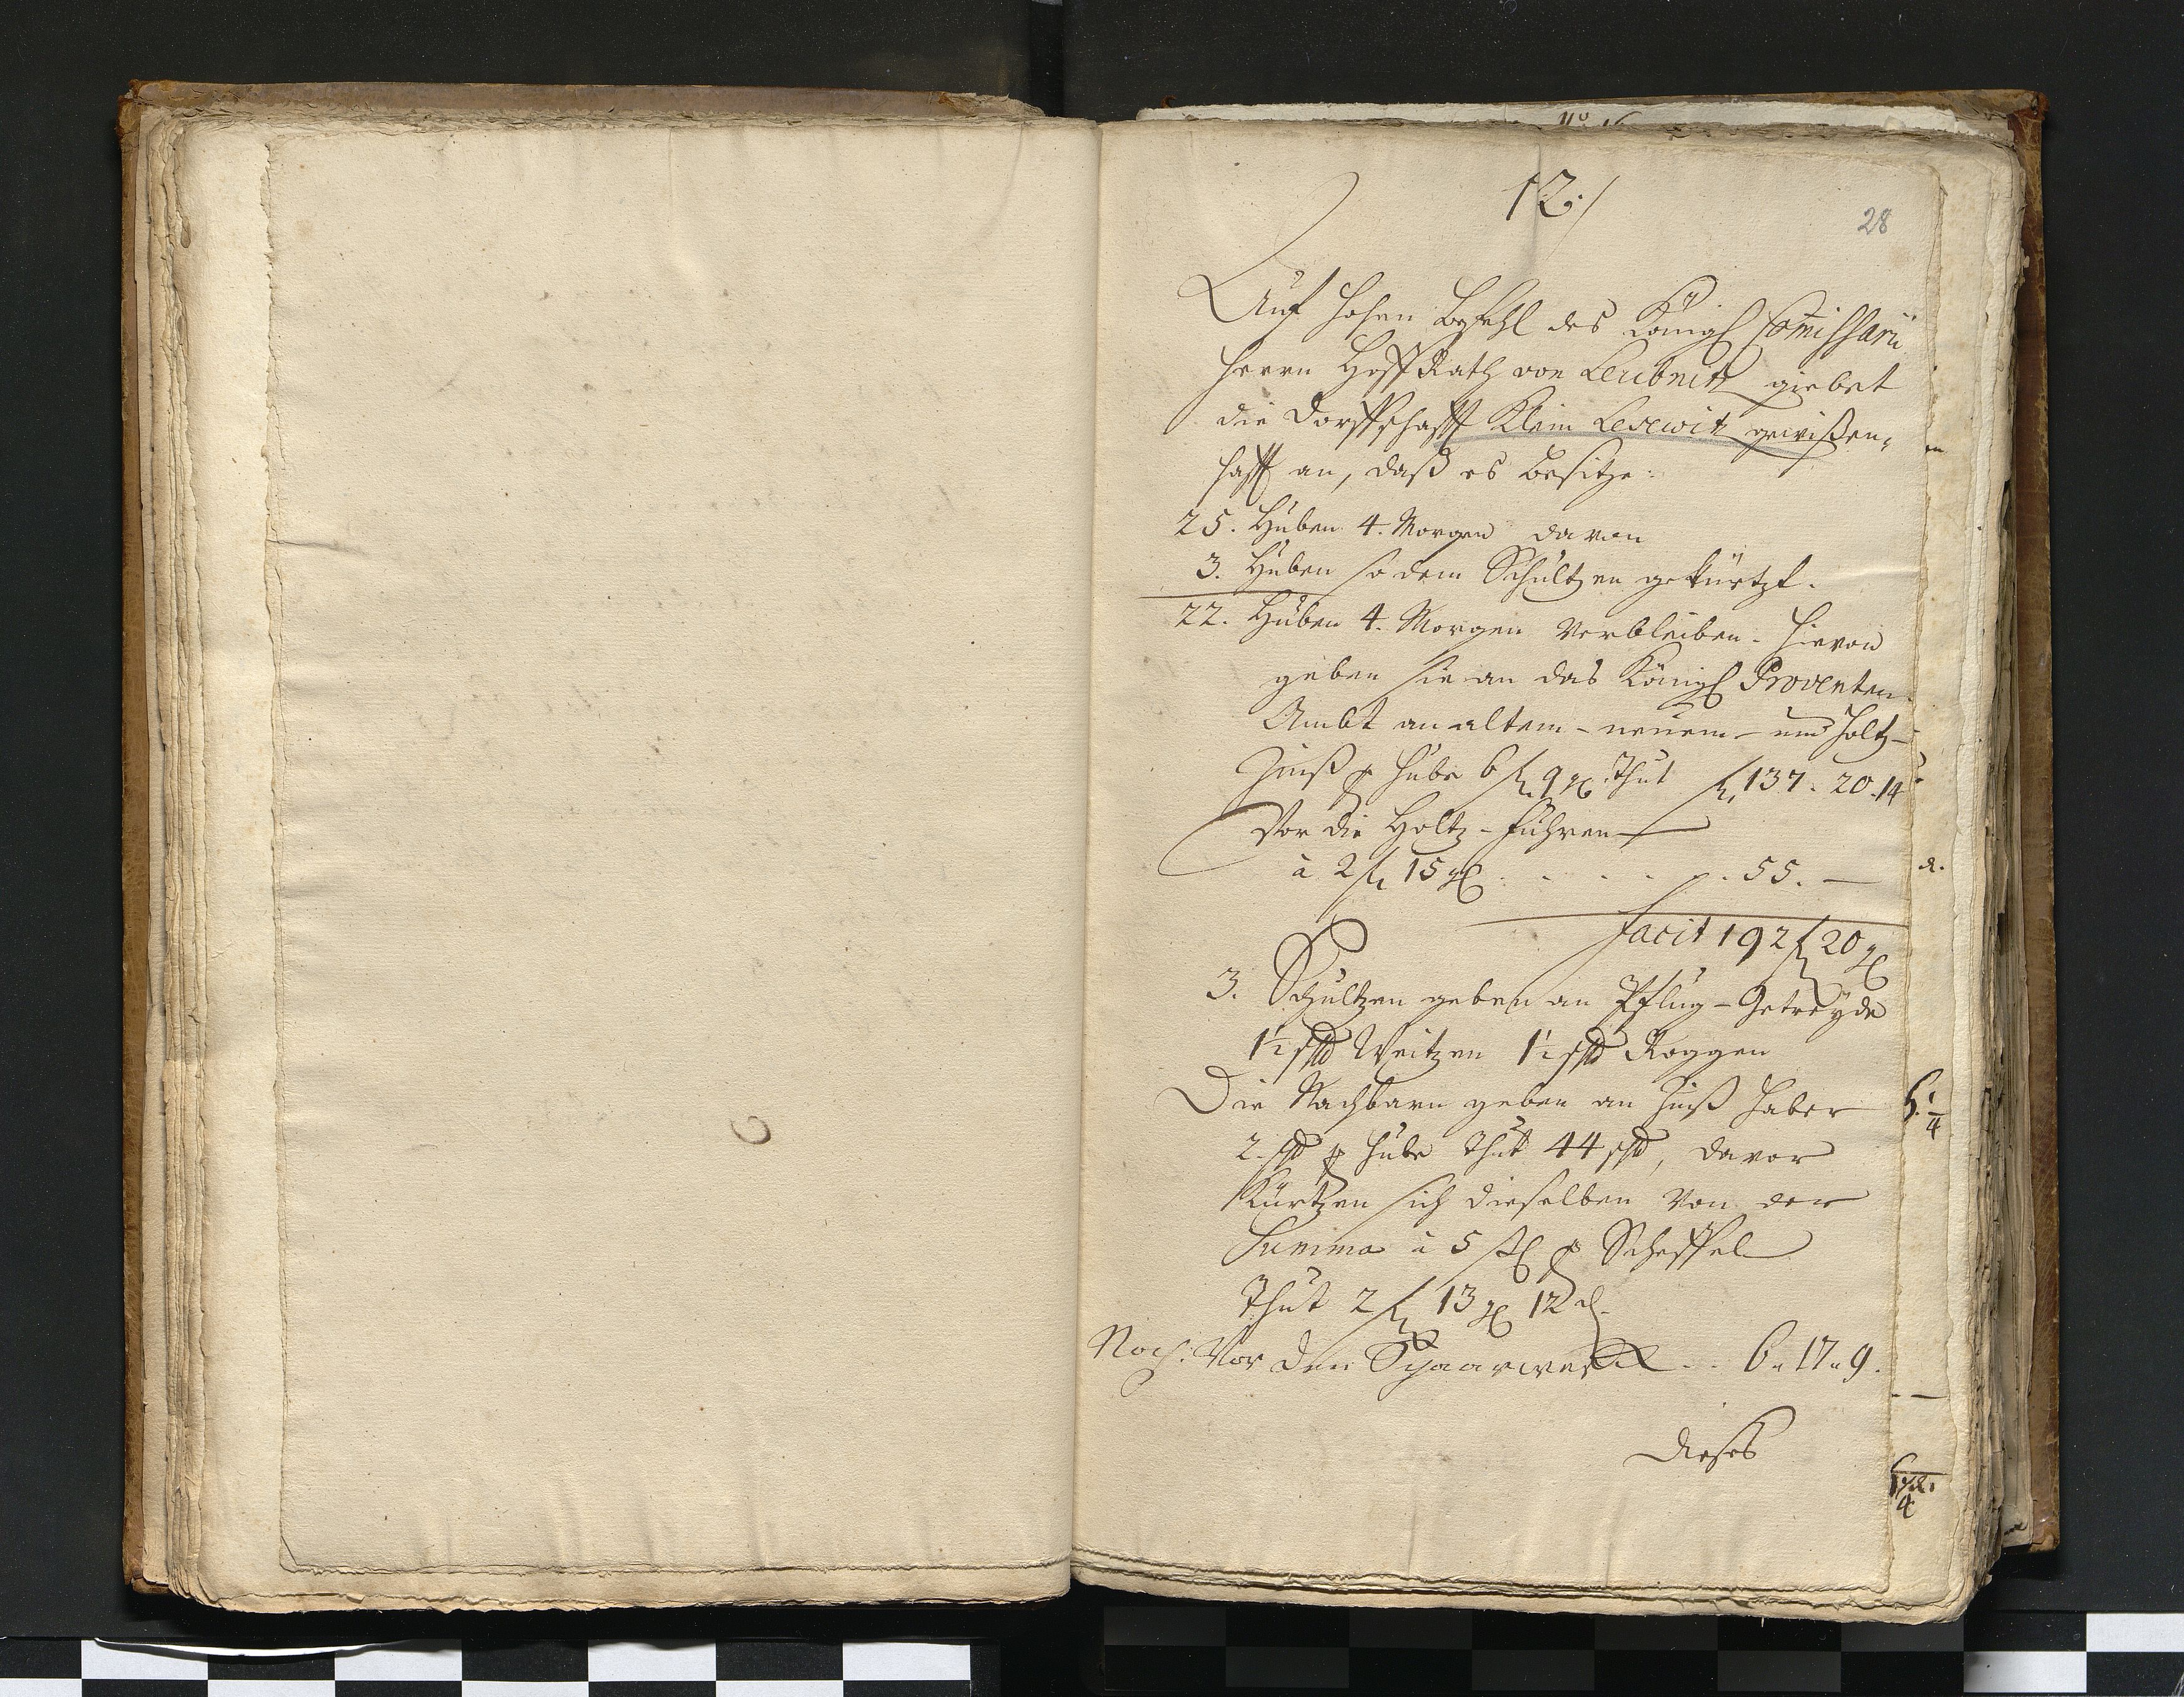 12:/
28
Auf hohen Befehl des Königl Comissarii
Herrn Hoff Rath von Leubnitz giebet
die Dorffschafft Klein Lesewitz gewißen,
hafft an, daß es besitze:
25. Huben 4. Morgen davon
3. Huben so dem Schultzen gekürtzt.
22. Huben 4. Morgen verbleiben. hievon
geben sie an das Königl Proventen
Ambt an altem - neuem - und Holtz-
Zinß p Hube 6 fl. 9 gl. Thut fl. 137. 20. 14
Vor die Holtz-Fuhren
à 2 fl 15 gl . . . . . . 55. —
Facit 192 fl 20 gl
3. Schultzen geben an Pflug-Getreyde
1½ schl Weitzen 1½ schl Roggen
Die Nachbarn geben an Zinß Haber
2. schl p Hube thut 44 schl, davor
Kürtzen sich dieselben von der
Summa à 5 ßl p Scheffel
Thut 2 fl 13 gl 12 d.
Noch. Vor den Schaarwerck . . 6 " 17 " 9.
Dieses